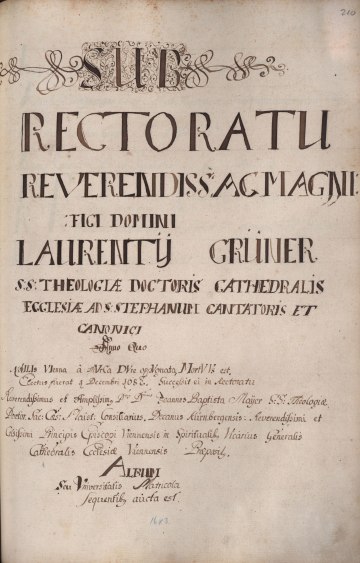 210
SUB
RECTORATU
REVERENDISS: AC MAGNI
FICI DOMINI
LAURENTIJ GRÜNER
S:S: THEOLOGIÆ DOCTORIS CATHEDRALIS
ECCLESIÆ AD S: STEPHANUM CANTATORIS ET
CANONICI
Anno Quo
Vienna à est,
Electus fuerat 4 Decembr: Successit ei in Rectoratu
Reverendissimus et Ampliss: Joannes Baptista Mayer S:S: Theologiæ
Doctor, Consiliarius, Decanus Kirnbergensis: Reverendissimi et
Celsissimi Principis Episcopi Viennensis in Spiritualib: Vicarius Generalis
Cathedralis Ecclesiæ Viennensis Præposit:
ALBUM
Seu Universitatis Matricola
sequentib: aucta est.